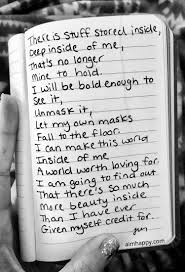 There is stuff stored inside,
Deep inside of me,
That's no longer
Mine to hold.
I will be bold enough to
See it,
Unmask it,
Let my own masks
Fall to the floor.
I can make this world
Inside of me
A world worth loving for
I am going to find out
That there's so much
More beauty inside
Than I have ever
Given myself credit for.
aimhappy.com